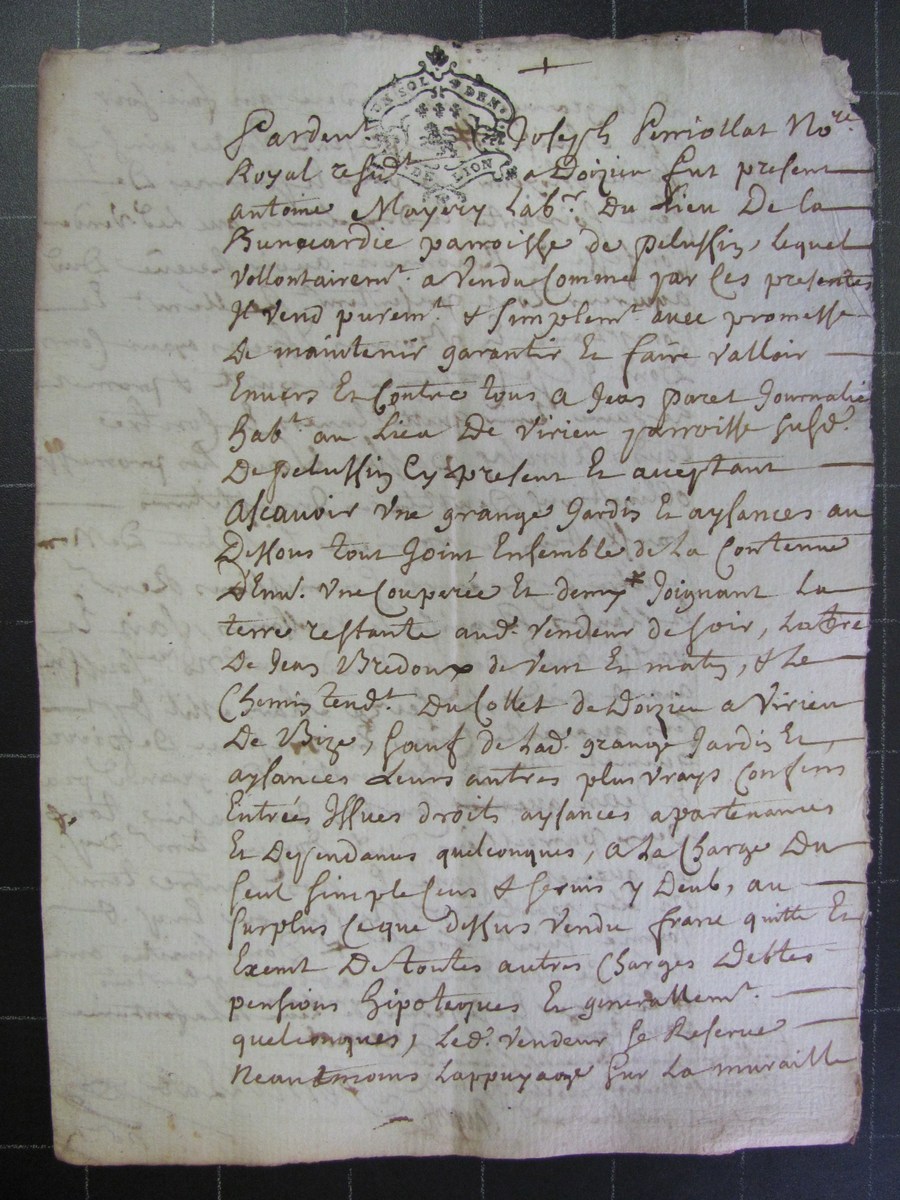 UN SOL 4 DEN^rs
DE LION
Pardevt Joseph Perriollat No^re
Royal residt a Doizieu fut present
antoine Mayery Lab^r. Du Lieu De la
parroisse de pelussin, lequel
vollontairem^t. a Vendu Comme par Ces presentes
Il Vend purem^t. & simplem^t. avec promesse
De maintenir garantir Et faire valloir
Envers Et Contre tous a Jean paret Journalie
hab^t. au Lieu De Virieu parroisse susd^e.
De pelussin Cy present Et aceptant
Ascavoir Vne grange Jardin Et aysances au
Dessous tout Joint Ensemble de La Contenue
d'Env^n. Vne Couperée Et demy * Joignant La
terre restante aud^t. Vendeur de soir, La tre
De Jean Bredoux de Vent Et matin, & Le
Chemin tend^t. Du Collet de Doizieu a Virieu
De Bize, sauf de Lad^e. grange Jardin Et
aysances Leurs autres plus vrays Confins
Entrées Issues droits aysances apartenances
Et Dependances quelconques, a La Charge Du
seul simple Cens & servis y Deub, au
surplus Ce que dessus Vendu franc quitte Et
Exemt De toutes autres Charges Debtes
pensions hipoteques Et generallem^t.
quelconques, Led^t. Vendeur se Reserve
Neantmoins Lappuyage sur La muraille